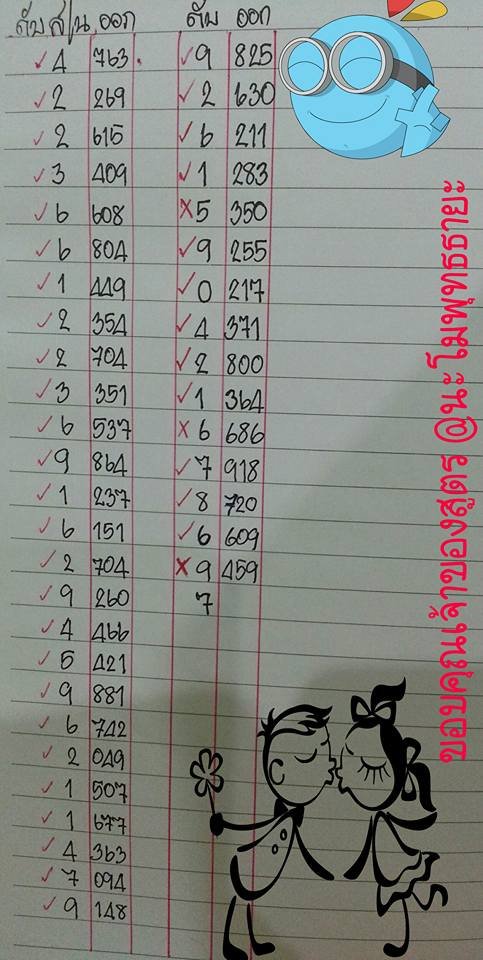 ดับ ส|น ออก
✓ 4 763.
✓ 2 269
✓ 2 615
✓ 3 409
✓ 6 608
✓ 6 804
✓ 1 449
✓ 2 354
✓ 2 704
✓ 3 351
✓ 6 537
✓ 9 864
✓ 1 237
✓ 6 151
✓ 2 704
✓ 9 260
✓ 4 466
✓ 5 421
✓ 9 881
✓ 6 742
✓ 2 049
✓ 1 507
✓ 1 677
✓ 4 363
✓ 7 094
✓ 9 148
ดับ ออก
✓ 9 825
✓ 2 630
✓ 6 211
✓ 1 283
✗ 5 350
✓ 9 255
✓ 0 217
✓ 4 371
✓ 2 800
✓ 1 364
✗ 6 686
✓ 7 918
✓ 8 720
✓ 6 609
✗ 9 459
7
ขอบคุณเจ้าของสูตร @นะโมพุทธธายะ